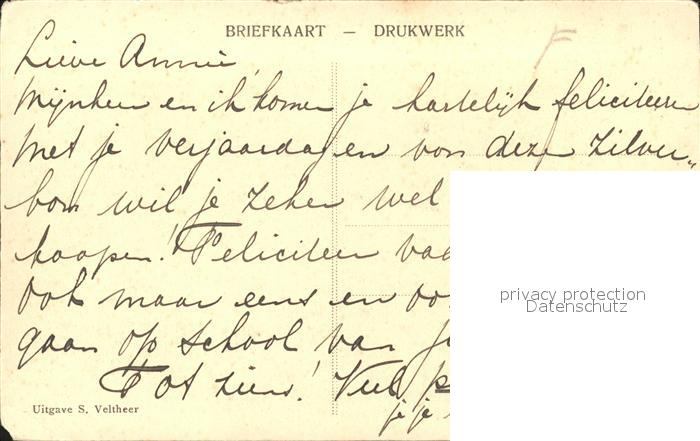 BRIEFKAART — DRUKWERK
Lieve Annie,
Mijnheer en ik komen je hartelijk feliciteeren
met je verjaardag en van deze zilver„
bon wil je zeker wel
koopen! Feliciteer
ook maar eens en
gaan op school van
Tot ziens! Veel
je je
Uitgave S. Veltheer
privacy protection
Datenschutz